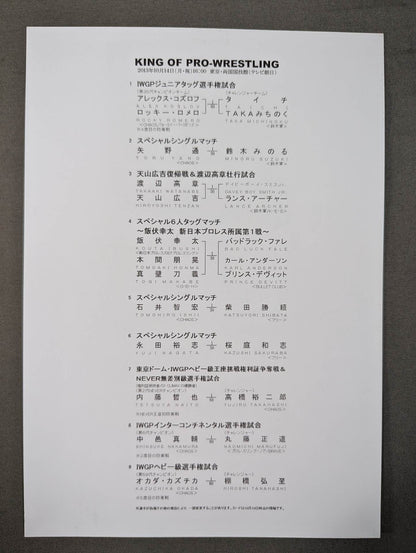 KING OF PRO-WRESTLING
2013年10月14日(月・祝)16:00 東京・両国国技館(テレビ朝日)
1 IWGPジュニアタッグ選手権試合
(チャレンジャーチーム)
アレックス・コズロフ タイチ
ALEX KOZLOV TAICHI
ロッキー・ロメロ TAKAみちのく
ROCKY ROMERO TAKA MICHINOKU
<鈴木軍>
2 スペシャルシングルマッチ
矢野通 鈴木みのる
TORU YANO MINORU SUZUKI
<CHAOS> <鈴木軍>
3 天山広吉復帰戦&渡辺高章壮行試合
渡辺高章 デイビーボーイ・スミスJr.
TAKAAKI WATANABE DAVEY BOY SMITH JR.
天山広吉 ランス・アーチャー
HIROYOSHI TENZAN LANCE ARCHER
4 スペシャル6人タッグマッチ
〜飯伏幸太 新日本プロレス所属第1戦〜
飯伏幸太 バッドラック・ファレ
KOUTA IBUSHI BAD LUCK FALE
本間朋晃 カール・アンダーソン
TOMOAKI HONMA KARL ANDERSON
真壁刀義 プリンス・デヴィット
TOGI MAKABE PRINCE DEVITT
<BULLET CLUB>
5 スペシャルシングルマッチ
石井智宏 柴田勝頼
TOMOHIRO ISHII KATSUYORI SHIBATA
<CHAOS> <フリー>
6 スペシャルシングルマッチ
永田裕志 桜庭和志
YUJI NAGATA KAZUSHI SAKURABA
<フリー>
7 東京ドーム・IWGPヘビー級王座挑戦権利証争奪戦&
NEVER無差別級選手権試合
(チャレンジャー)
内藤哲也 高橋裕二郎
TETSUYA NAITO YUJIRO TAKAHASHI
<CHAOS>
8 IWGPインターコンチネンタル選手権試合
(チャレンジャー)
中邑真輔 丸藤正道
SHINSUKE NAKAMURA NAOMICHI MARUFUJI
<CHAOS> <プロレスリング・ノア>
9 IWGPヘビー級選手権試合
(チャレンジャー)
オカダ・カズチカ 棚橋弘至
KAZUCHIKA OKADA HIROSHI TANAHASHI
<CHAOS>